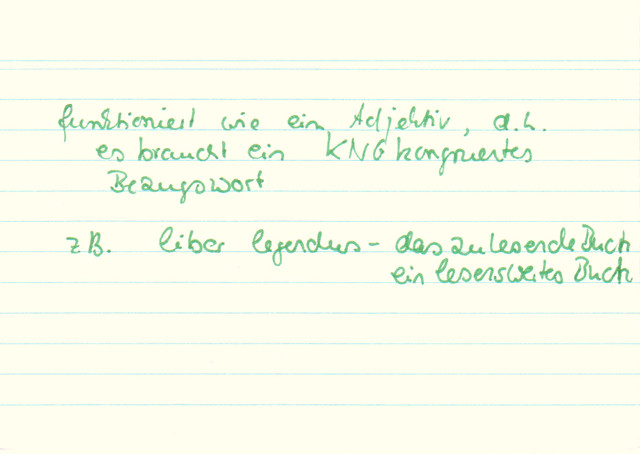 funktioniert wie ein Adjektiv, d.h.
es braucht ein KNG kongruentes
Bezugswort
z.B. liber legendus - das zu lesende Buch
ein lesenswertes Buch